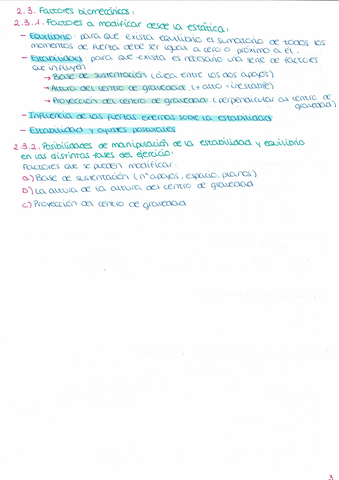 2.3. Factores biomecánicos:
2.3.1. Factores a modificar desde la estática:
- Equilibrio: para que exista equilibrio el sumatorio de todos los
momentos de fuerza debe ser igual a cero o próximo a él.
- Estabilidad: para que exista es necesario una serie de factores
que influyen
→ Base de sustentación (área entre los dos apoyos)
→ Altura del centro de gravedad (+ alto - inestable)
→ Proyección del centro de gravedad (perpendicular al centro de
gravedad)
- Influencia de las fuerzas externas sobre la estabilidad
- Estabilidad y ajustes posturales
2.3.2. Posibilidades de manipulación de la estabilidad y equilibrio
en las distintas fases del ejercicio:
Factores que se pueden modificar:
a) Base de sustentación (nº apoyos, espacio, planos)
b) La altura de la altura del centro de gravedad
c) Proyección del centro de gravedad
3